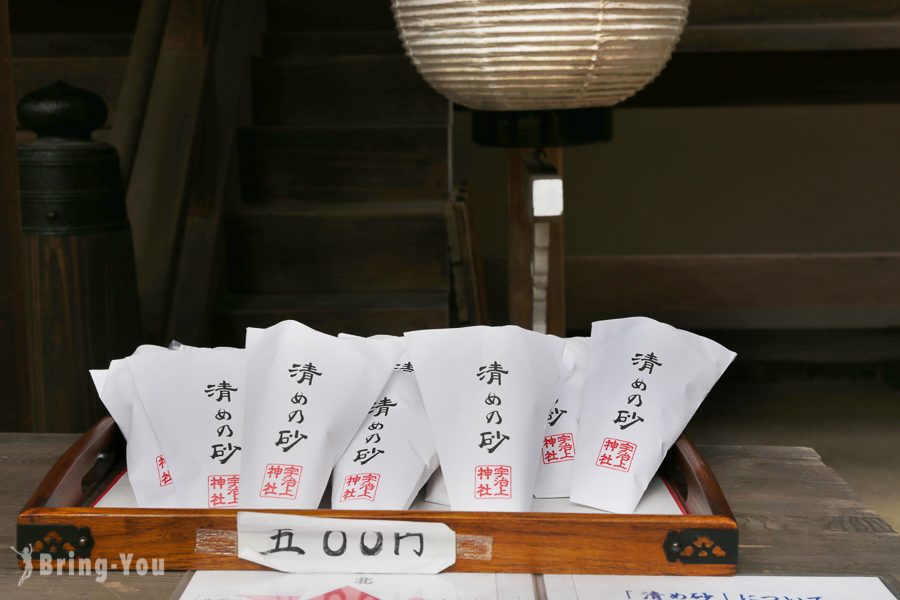 清めの砂
宇治上
神社
清めの砂
宇治上
神社
清めの砂
宇治上
神社
清めの砂
宇治上
神社
清めの砂
宇治上
神社
五〇〇円
北
「清め砂」について
Bring-You